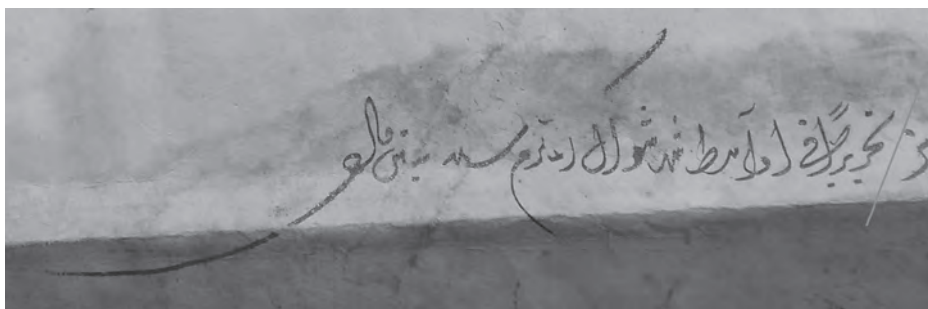 تحريرا في اواسط شهر شوال المكرم سنه والف